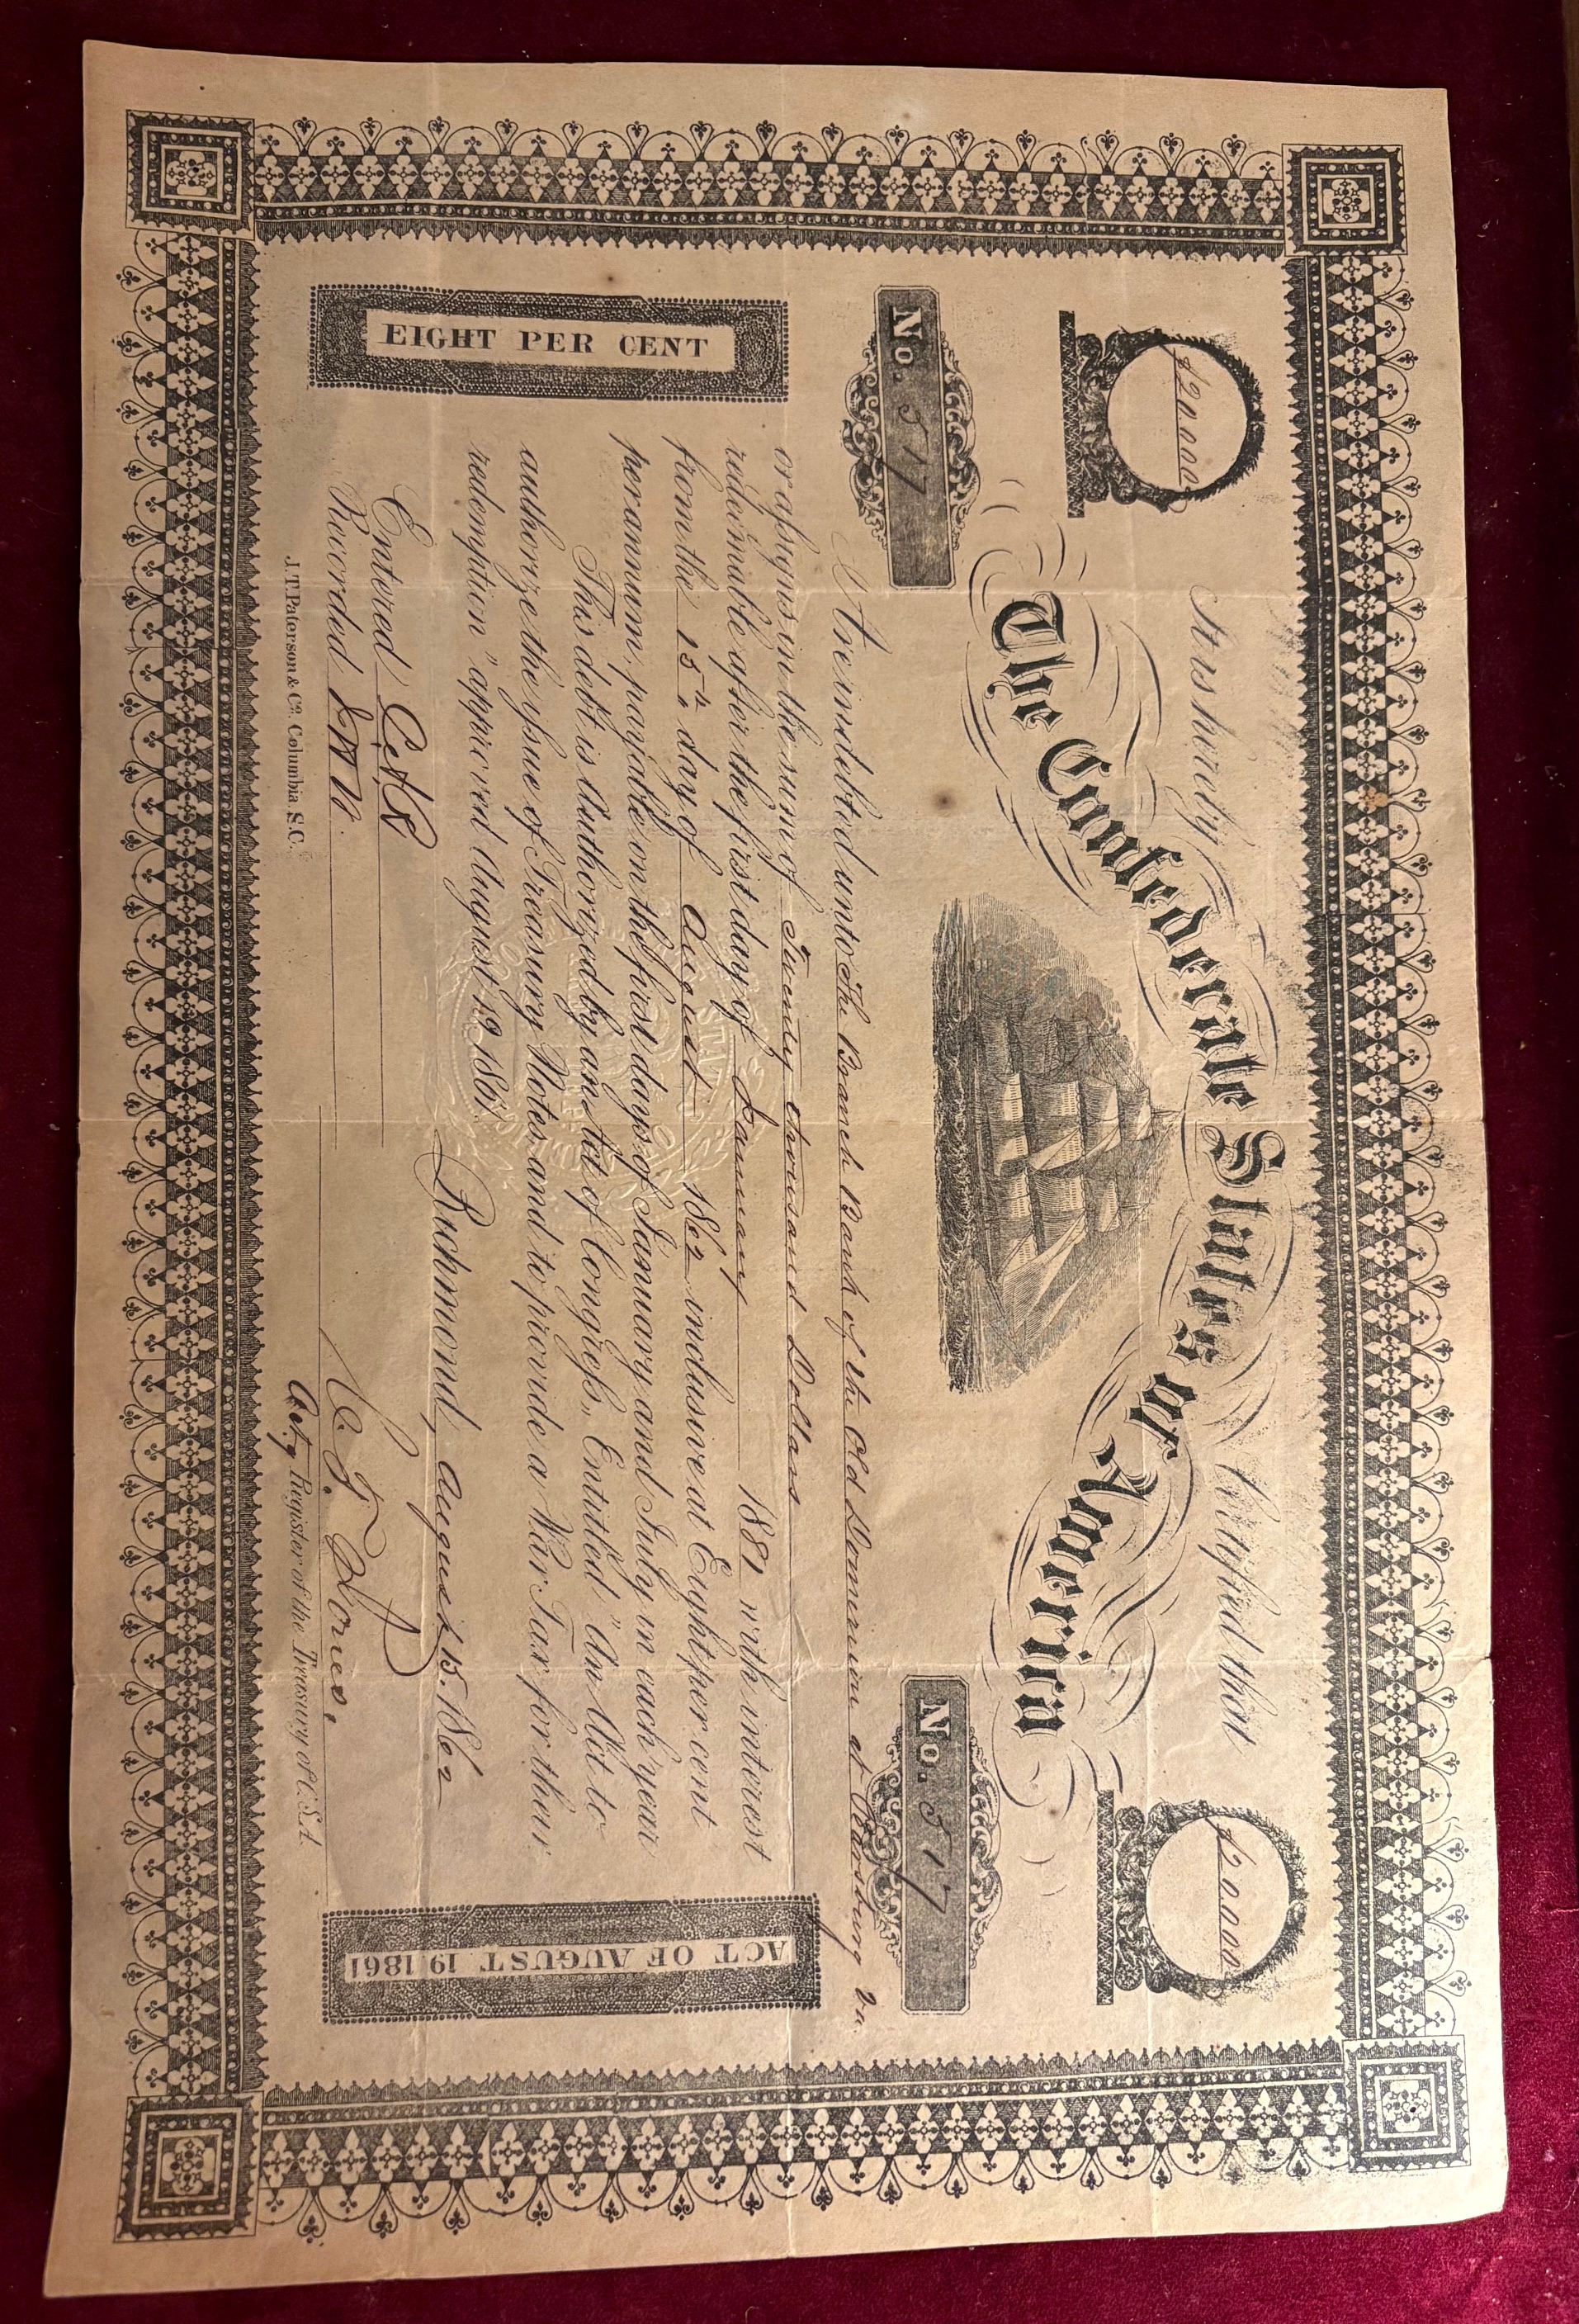 $20.000
It is hereby Certified that
$20.000
The Confederate States of America
No. 517
No. 517
Are indebted unto The Branch Bank of the Old Dominion at Pearisburg Va.
or assigns in the sum of Twenty thousand Dollars
redeemable after the first day of January 1881 with interest
from the 15th day of August 1862 inclusive at Eight per cent
per annum, payable on the first days of January and July in each year
This debt is Authorized by an Act of Congress, Entitled "An Act to
authorize the issue of Treasury Notes, and to provide a War Tax for their
redemption" approved August 19 1861.
EIGHT PER CENT
ACT OF AUGUST 19, 1861
Richmond, August 15. 1862
Entered
Recorded
C. T. Jones,
Act.g Register of the Treasury of C.S.A.
J. T. Paterson & Co. Columbia, S.C.